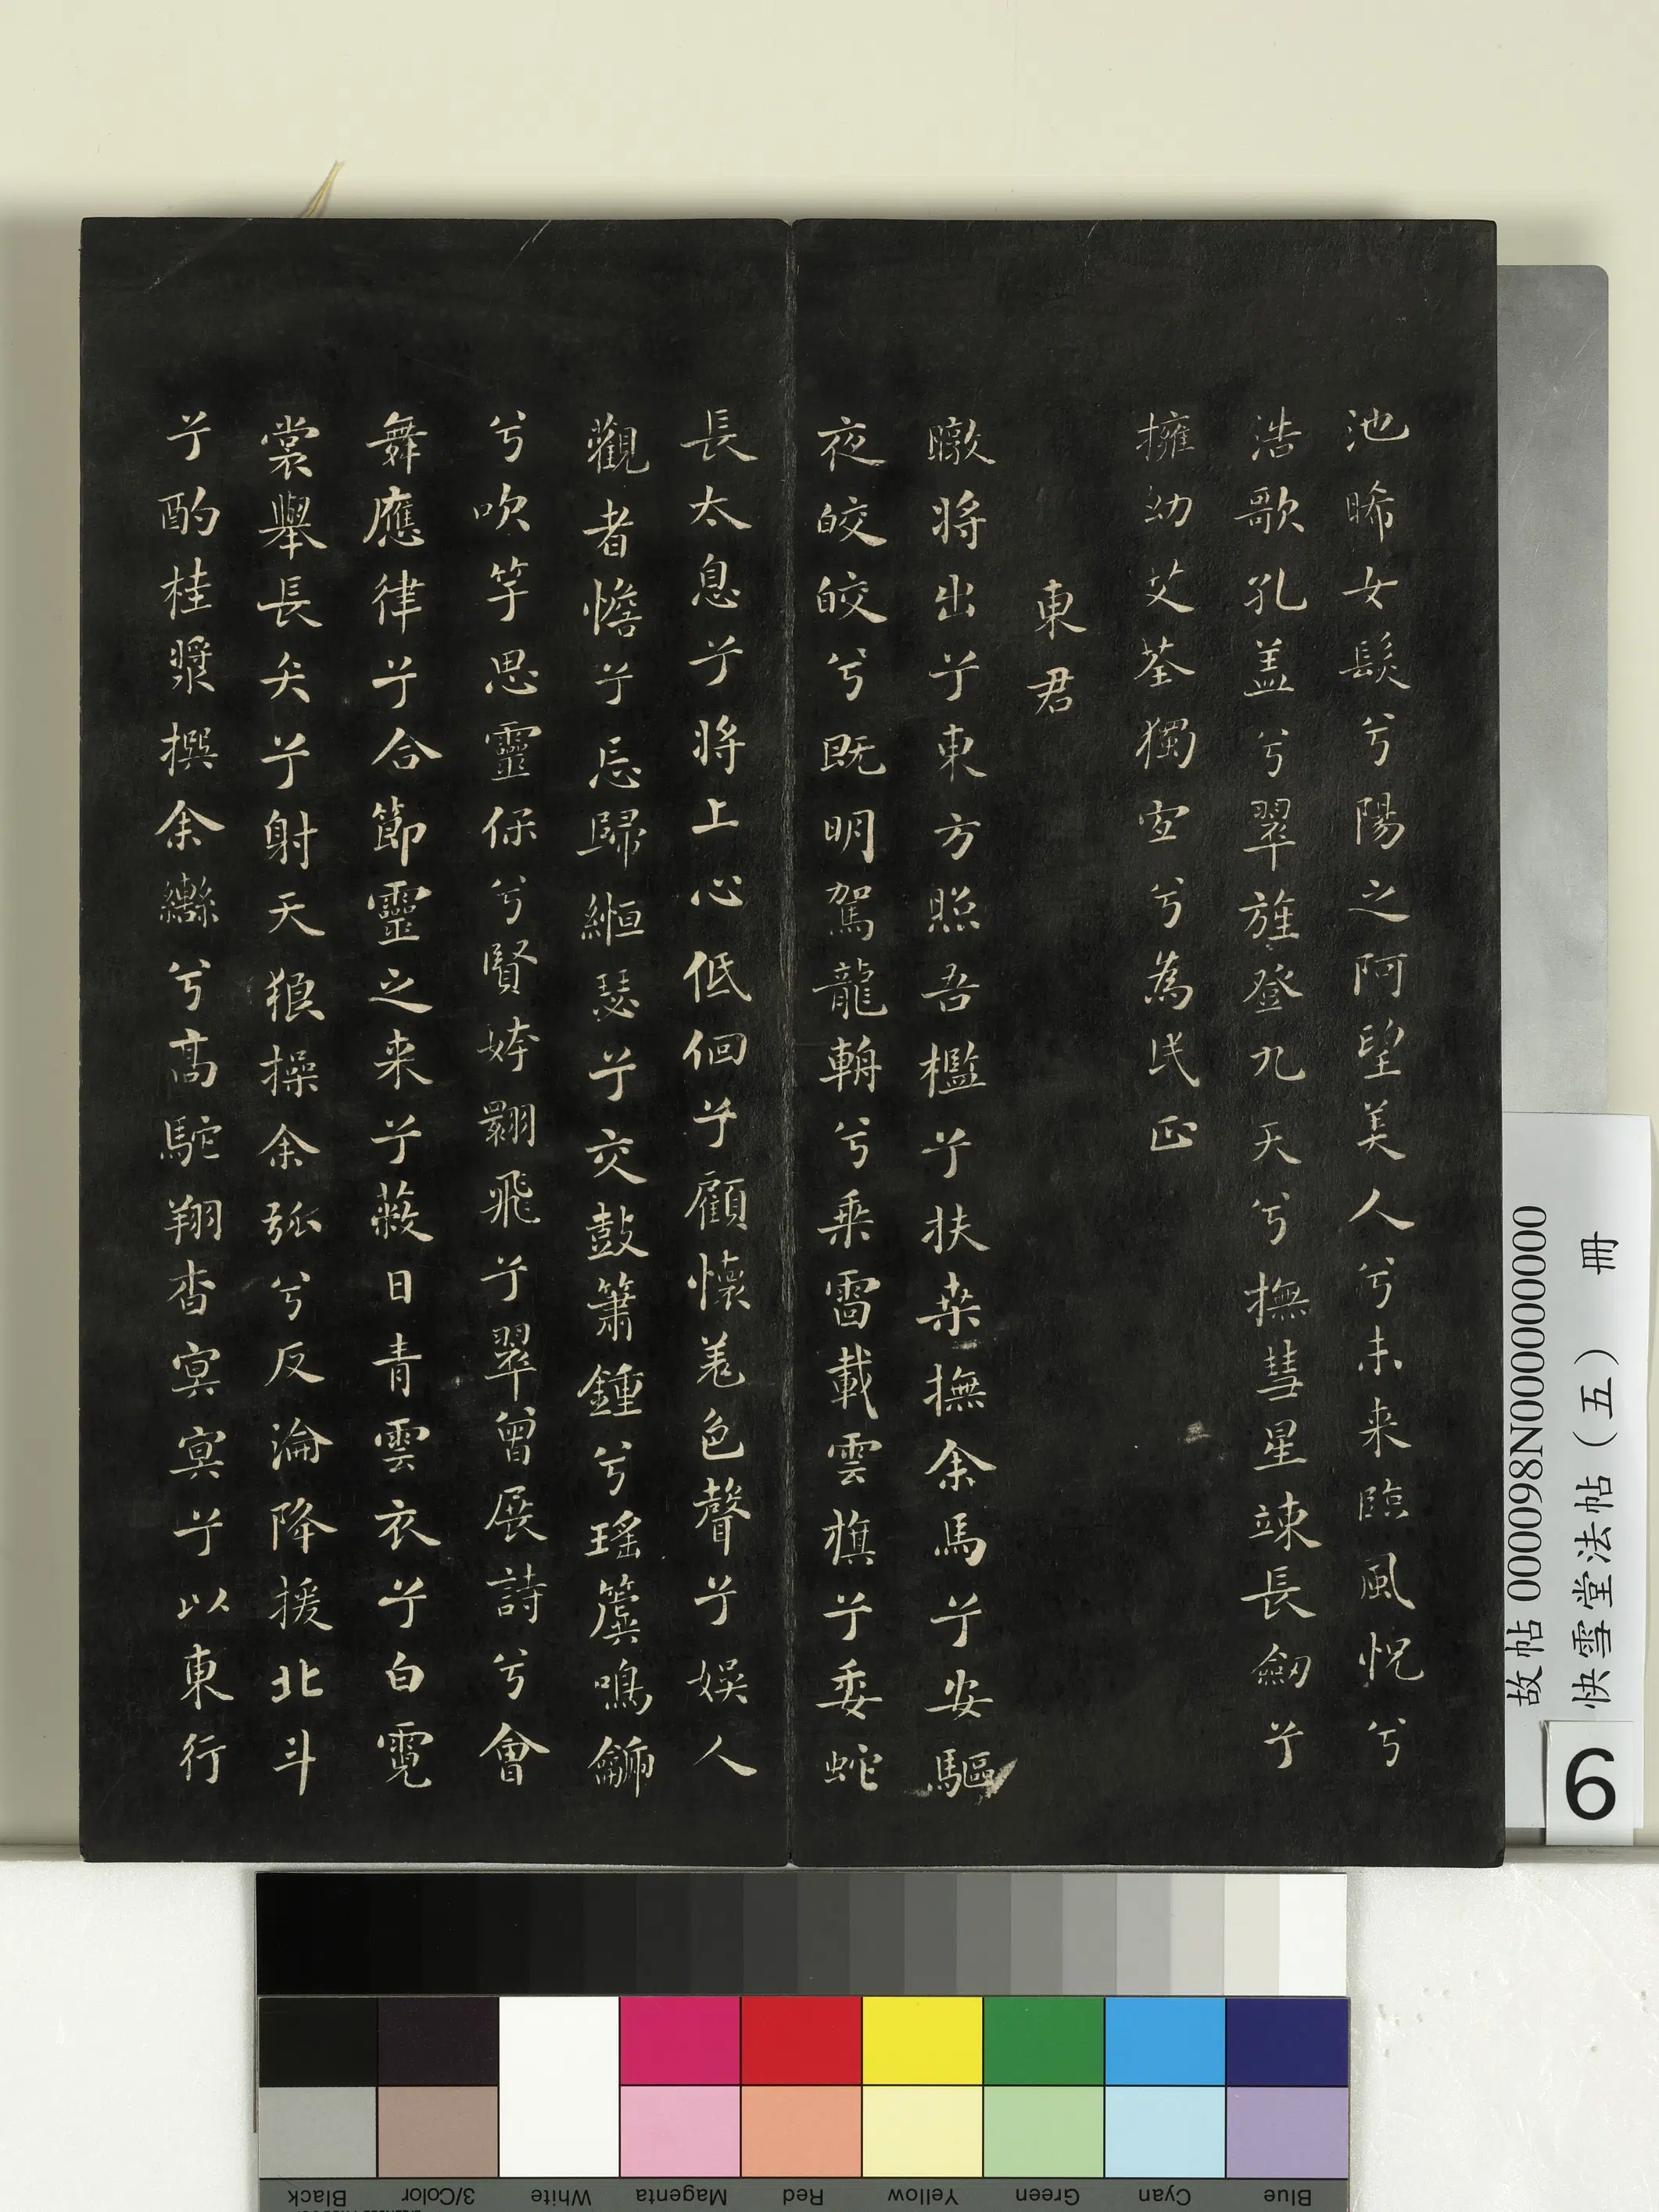 池晞女髮兮陽之阿望美人兮未来臨風怳兮
浩歌孔盖兮翠旌登九天兮撫彗星竦長劒兮
擁幼艾荃獨宜兮為民正
東君
暾将出兮東方照吾檻兮扶桒撫余馬兮安驅
夜皎皎兮既明駕龍輈兮乘雷載雲旗兮委蛇
長太息兮将上心低佪兮顧懷羌色聲兮娱人
觀者憺兮忘歸緪瑟兮交鼓簫鍾兮瑤簴鳴鷈
兮吹竽思靈保兮賢姱翾飛兮翠曾展詩兮會
舞應律兮合節靈之来兮蔽日青雲衣兮白霓
裳舉長矢兮射天狼操余弧兮反淪降援北斗
兮酌桂漿撰余轡兮高駝翔杳冥冥兮以東行
故帖 000098N000000000
快雪堂法帖（五） 冊
6
Black
3/Color
White
Magenta
Red
Yellow
Green
Cyan
Blue